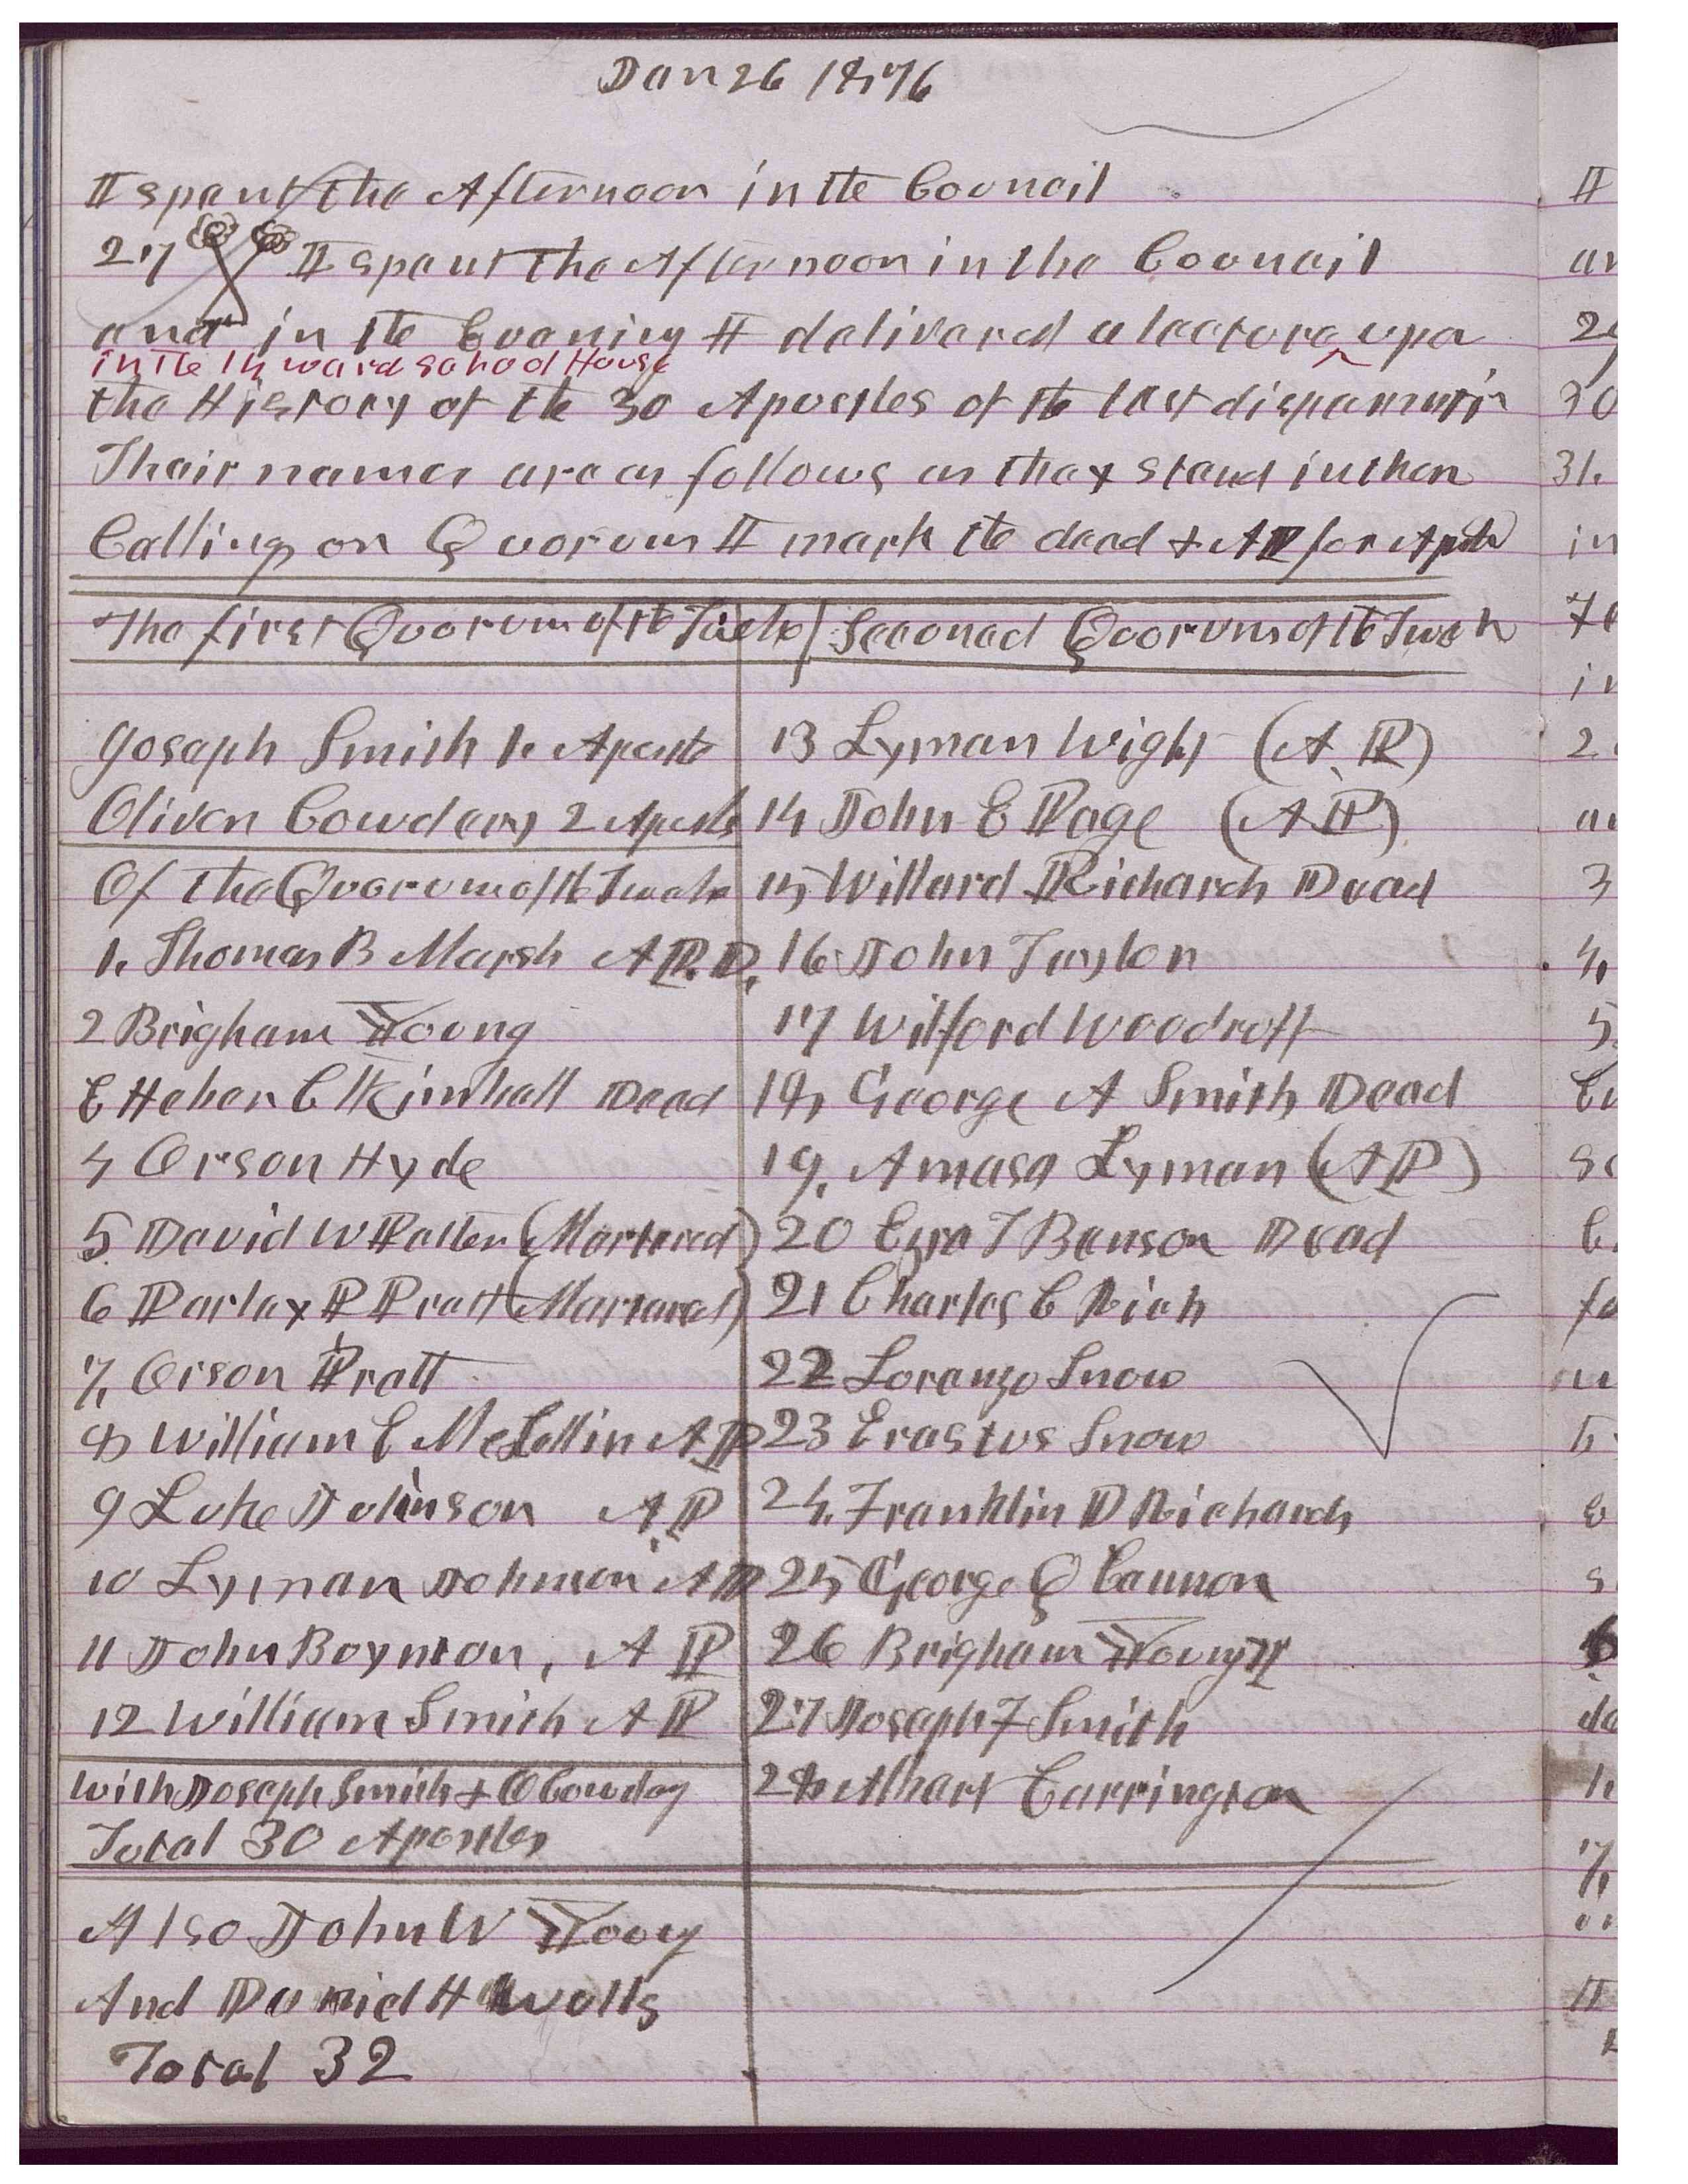 Jan 26 1876
I spent the Afternoon in the Council
27 I spent the Afternoon in the Council
and in the Evening I delivered a lecture ^ upon
in the 14 ward school House
the History of the 30 Apostles of the last dispensation
Their names are as follows as they stand in their
Calling or Quorum I mark the dead & AP for Apost
The first Quorum of the Twelve
Joseph Smith 1. Apostle
Oliver Cowdery 2 Apostle
Of the Quorum of the Twelve
1. Thomas B Marsh AP. D.
2 Brigham Young
3 Heber C Kimball Dead
4 Orson Hyde
5 David W Patten (Martered)
6 Parley P Pratt (Martered)
7. Orson Pratt
8 William E McLellin AP
9 Luke Johnson AP
10 Lyman Johnson AP
11 John Boynton, AP
12 William Smith AP
with Joseph Smith & O Cowdey
Total 30 Apostles
Also John W Young
And Daniel H Wells
Total 32
Seconed Quorum of the Twelve
13 Lyman Wight (A.P)
14 John E Page (AP)
15 Willard Richards Dead
16 John Taylor
17 Wilford Woodruff
18 George A Smith Dead
19. Amasa Lyman (AP)
20 Ezra T Benson Dead
21 Charles C Rich
22 Lorenzo Snow
23 Erastus Snow
24. Franklin D Richards
25 George Q Cannon
26 Brigham Young Jr
27 Joseph F Smith
28 Albert Carrington